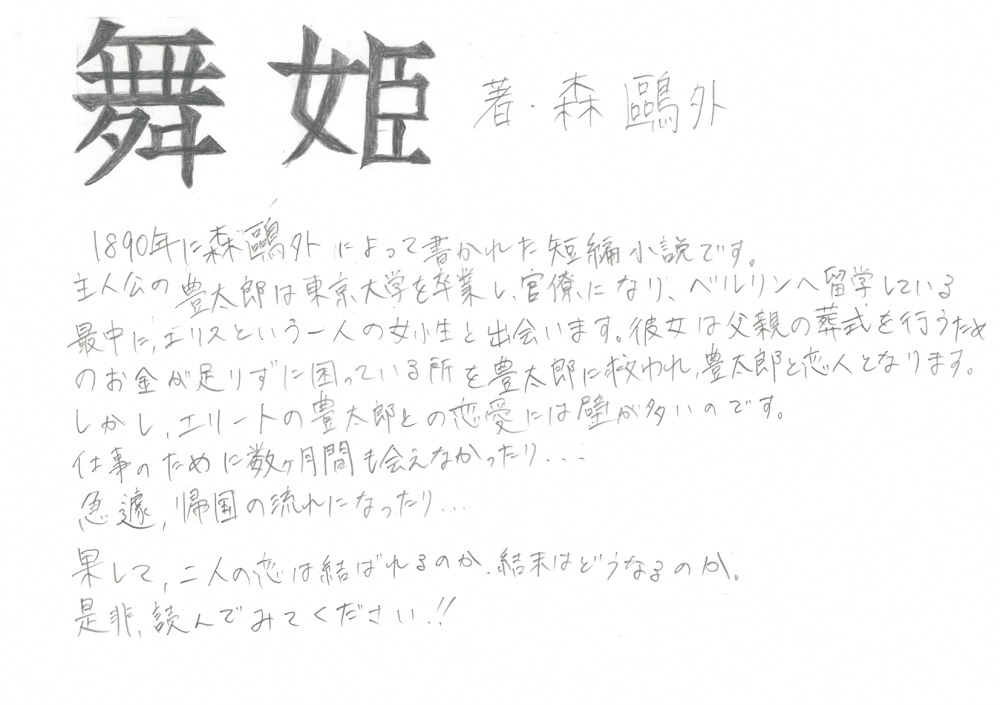 舞姫 著・森鷗外
1890年に森鷗外によって書かれた短編小説です。
主人公の豊太郎は東京大学を卒業し、官僚になり、ベルリンへ留学している
最中に、エリスという一人の女性と出会います。彼女は父親の葬式を行うため
のお金が足りずに困っている所を豊太郎に救われ、豊太郎と恋人となります。
しかし、エリートの豊太郎との恋愛には壁が多いのです。
仕事のために数ヶ月間も会えなかったり...
急遽、帰国の流れになったり...
果して、二人の恋は結ばれるのか、結末はどうなるのか。
是非、読んでみてください!!